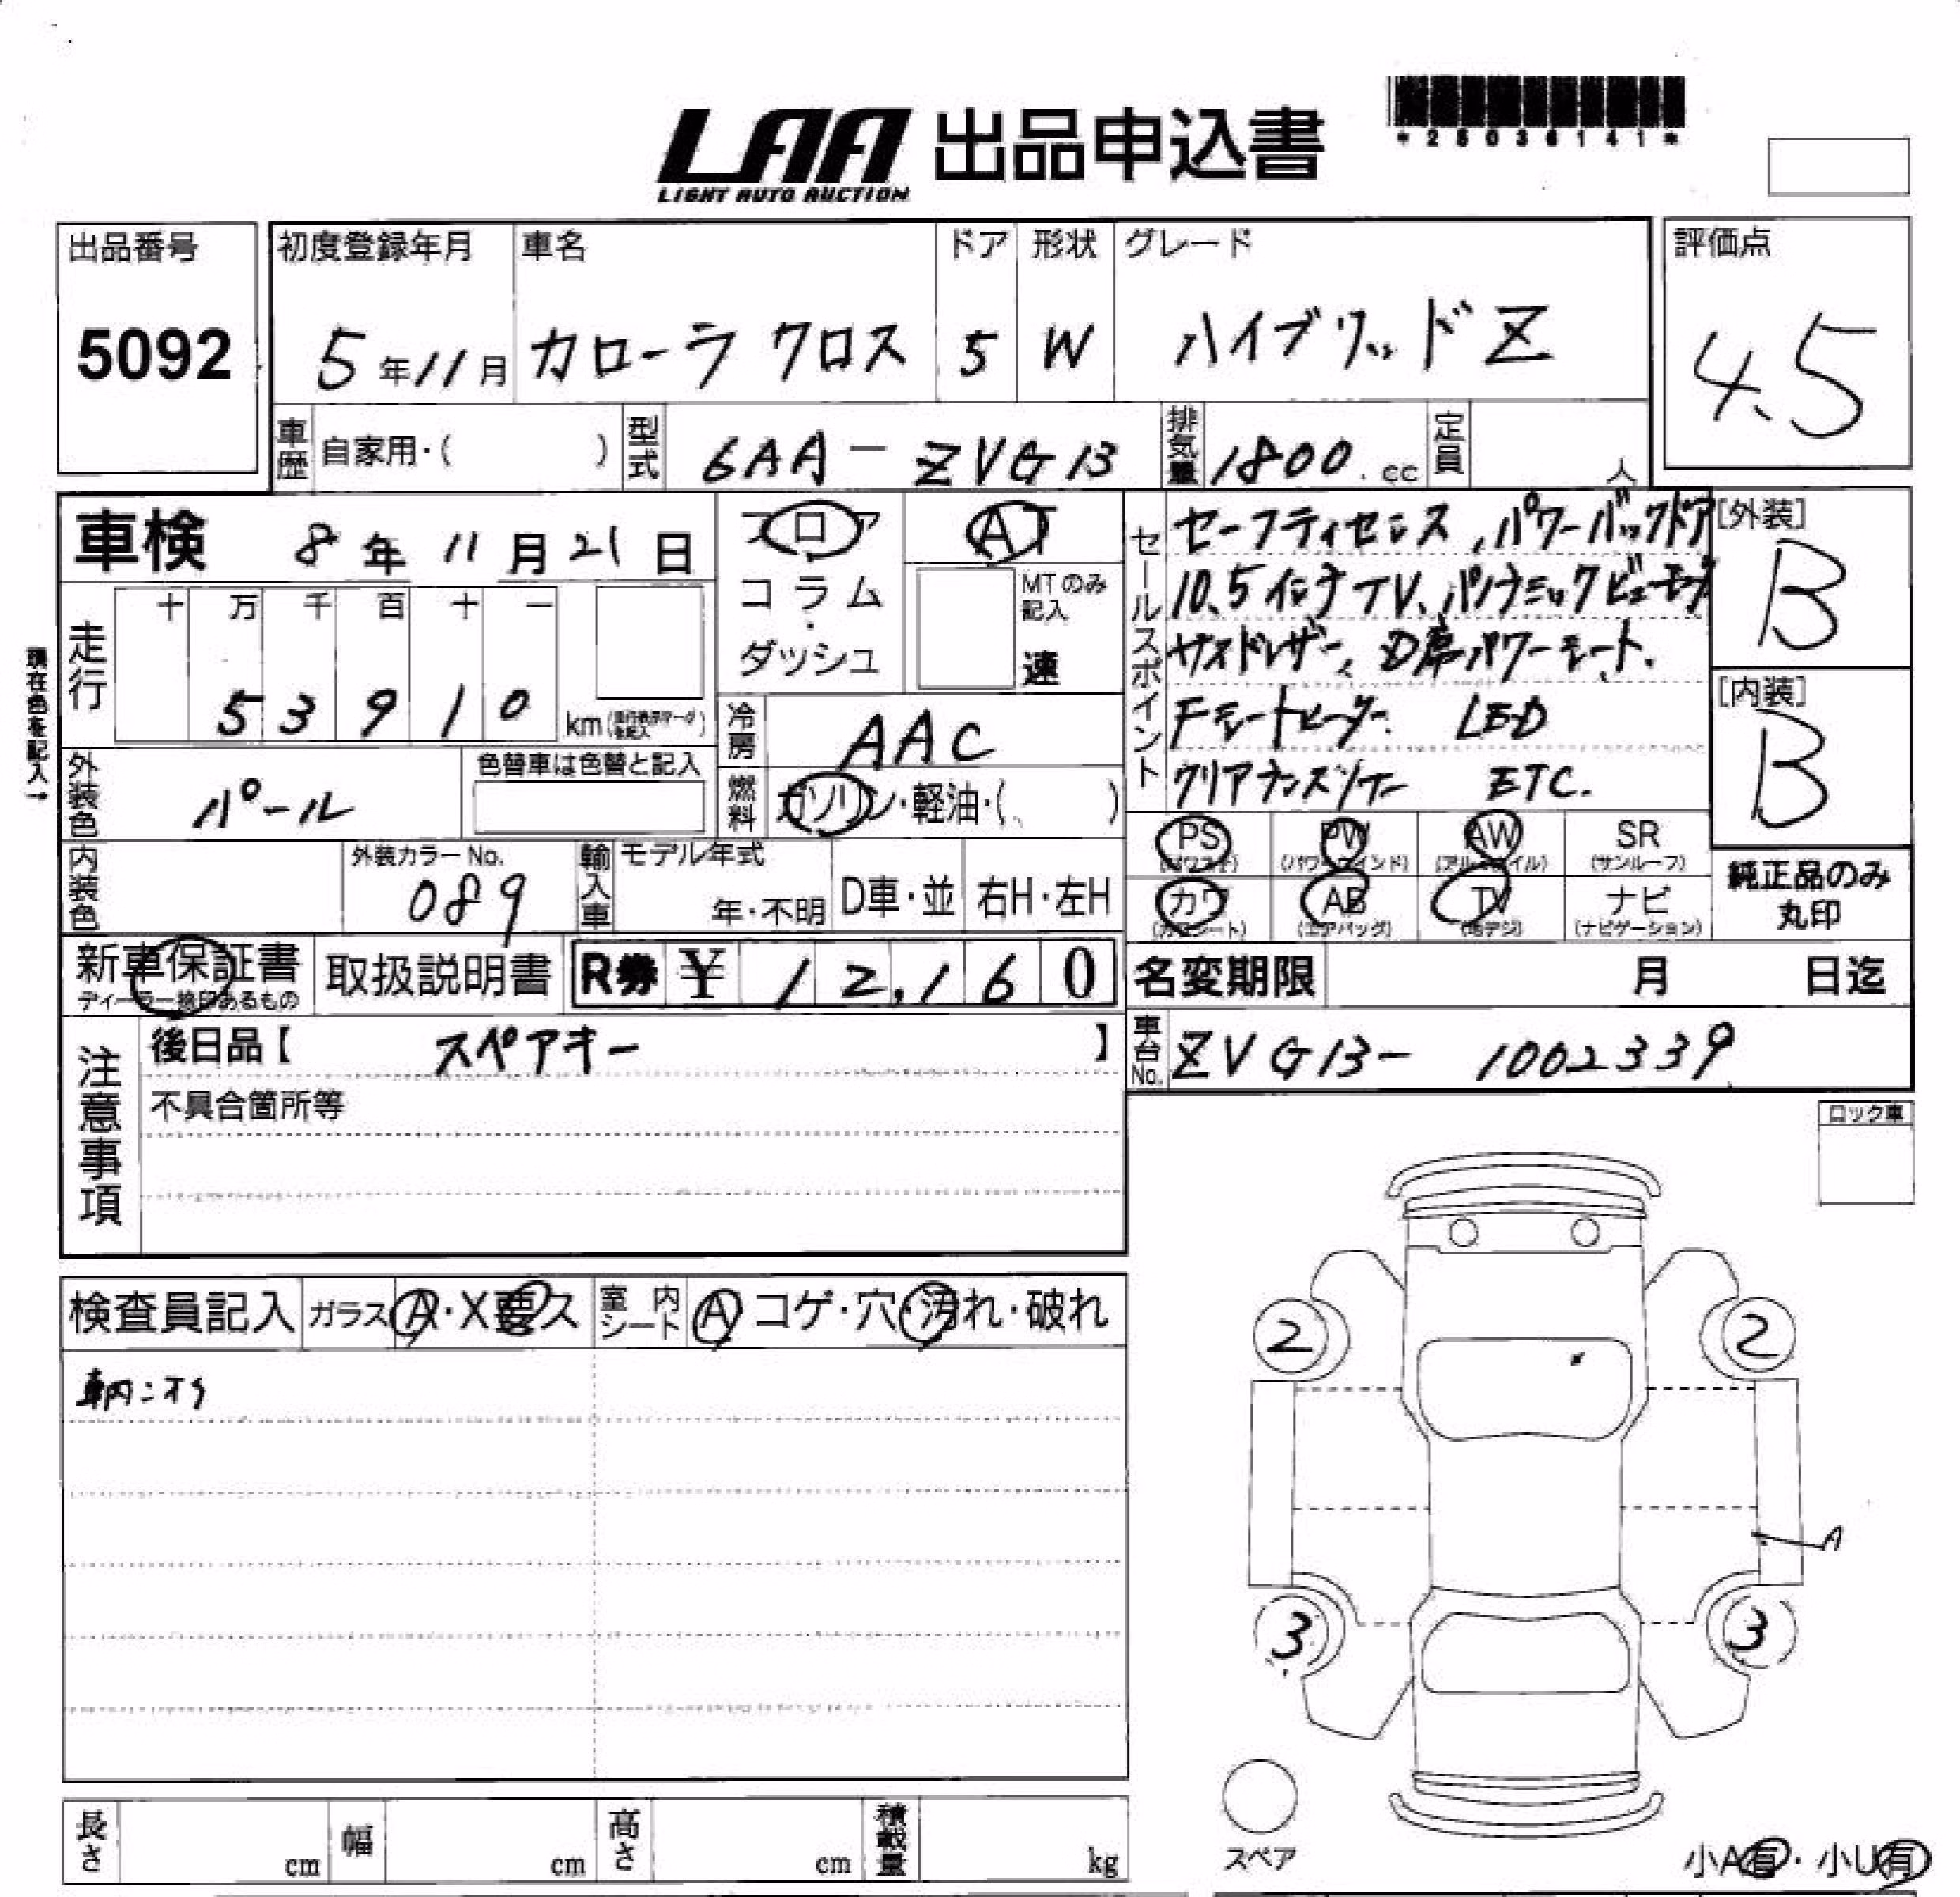 *25036141*
LAA 出品申込書
LIGHT AUTO AUCTION
出品番号 初度登録年月 車名 ドア 形状 グレード 評価点
5092 5年11月 カローラ クロス 5 W ハイブリッド Z 4.5
車歴 自家用・( ) 型式 6AA-ZVG13 排気量 1800.cc 定員 人
車検 8年11月21日 フロア AT
コラム・ダッシュ MTのみ記入 速
現在色を記入→
走行 十 万 千 百 十 一
53910 km
冷房 AAC
外装色 パール 色替車は色替と記入 燃料 ガソリン・軽油・( )
セールスポイント セーフティセンス、パワーバックドア
10.5インチTV、パノラミックビューモニタ
D席パワーシート、
Fシートヒーター LED
クリアランスソナー ETC.
[外装] B
[内装] B
内装色 外装カラーNo. 089 輸入車 モデル年式 年・不明 D車・並 右H・左H
PS (パワステ) PW (パワーウインド) AW (アルミホイル) SR (サンルーフ)
カワ (カワシート) AB (エアバッグ) TV (地デジ) ナビ (ナビゲーション)
純正品のみ丸印
新車保証書 ディーラー捺印あるもの 取扱説明書 R券 ¥12,160
名変期限 月 日迄
車台No. ZVG13-1002339
注意事項 後日品【 スペアキー 】
不具合箇所等
ロック車
検査員記入 ガラス A・X要ス 室内シート A コゲ・穴・汚れ・破れ
車内ニオイ
2 2
A
3 3
スペア
長さ cm 幅 cm 高さ cm 積載量 kg
小A有・小U有